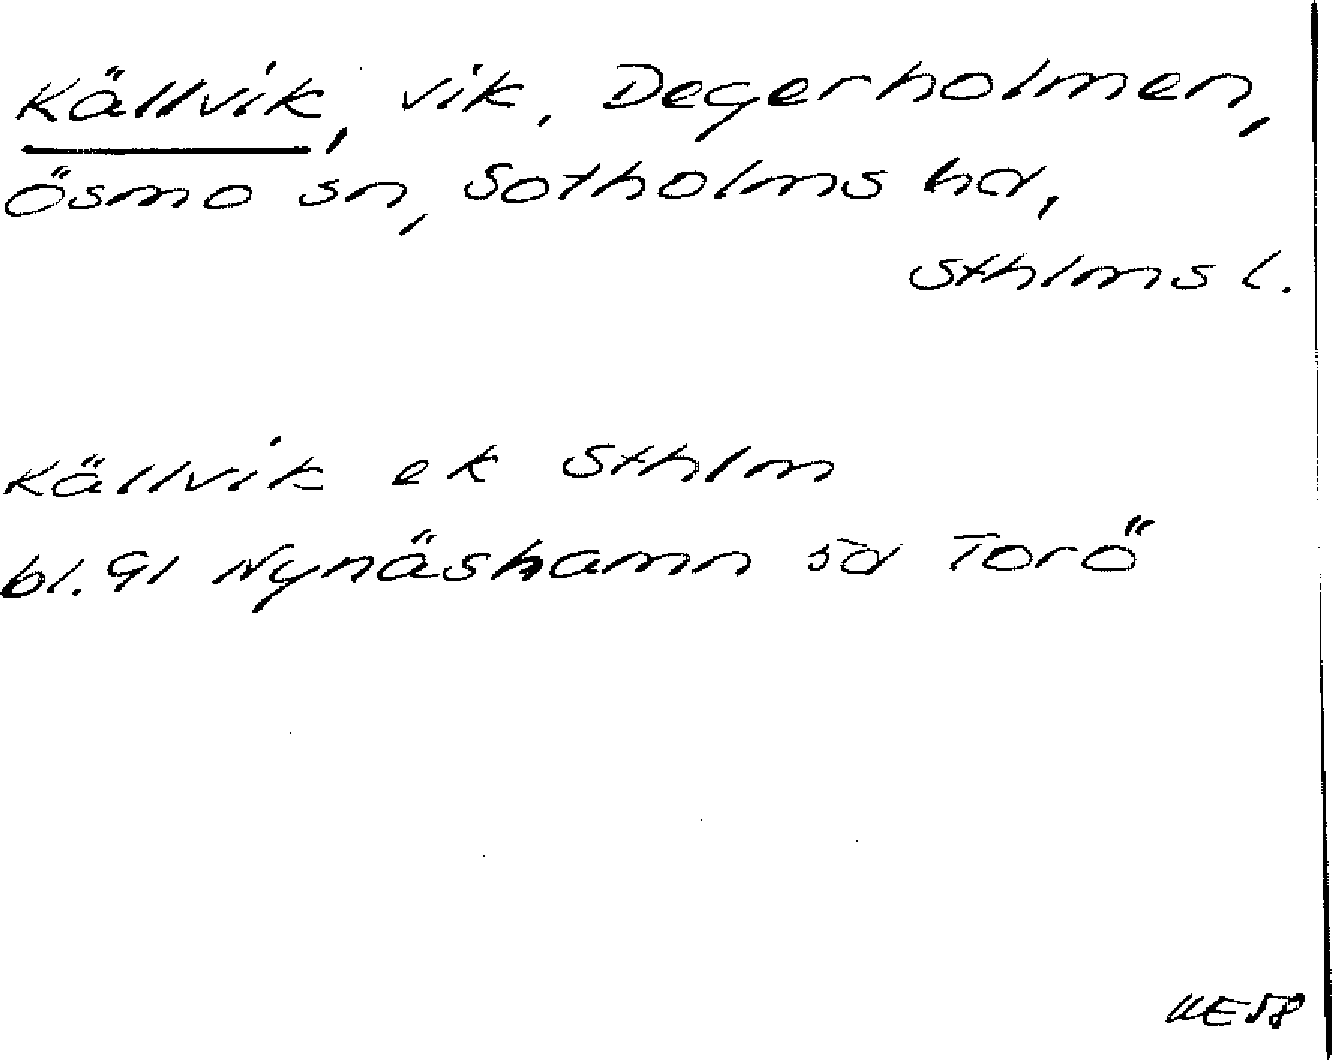 Källvik, vik, Degerholmen,
Ösmo sn, Sotholms hd,
Sthlms l.
Källvik ek Sthlm
bl. 91 Nynäshamn sd Torö
UE58